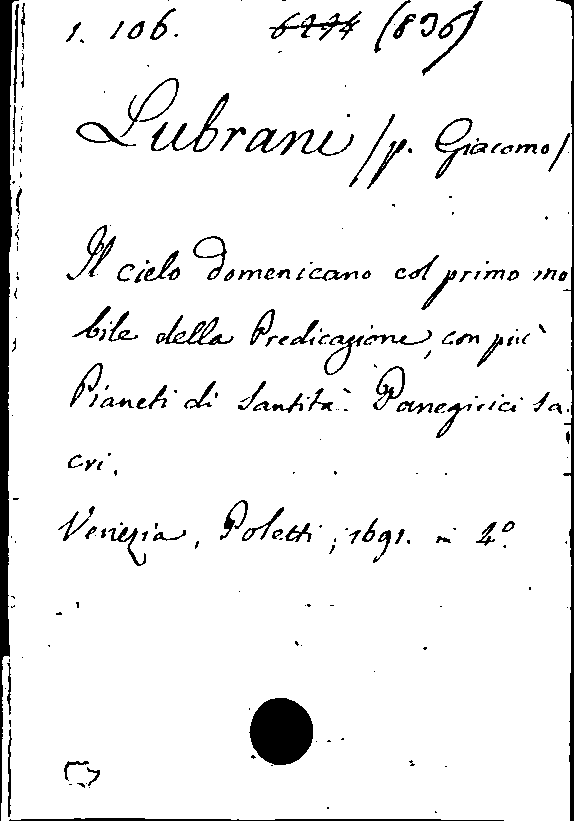 1. 106. 6274 (836)
Lubrani / p. Giacomo /
Il cielo Domenicano col primo mo
bile della Predicazione, con più
Pianeti di Santità. Panegirici Sa
cri.
Venezia, Poletti, 1691. in 4º.